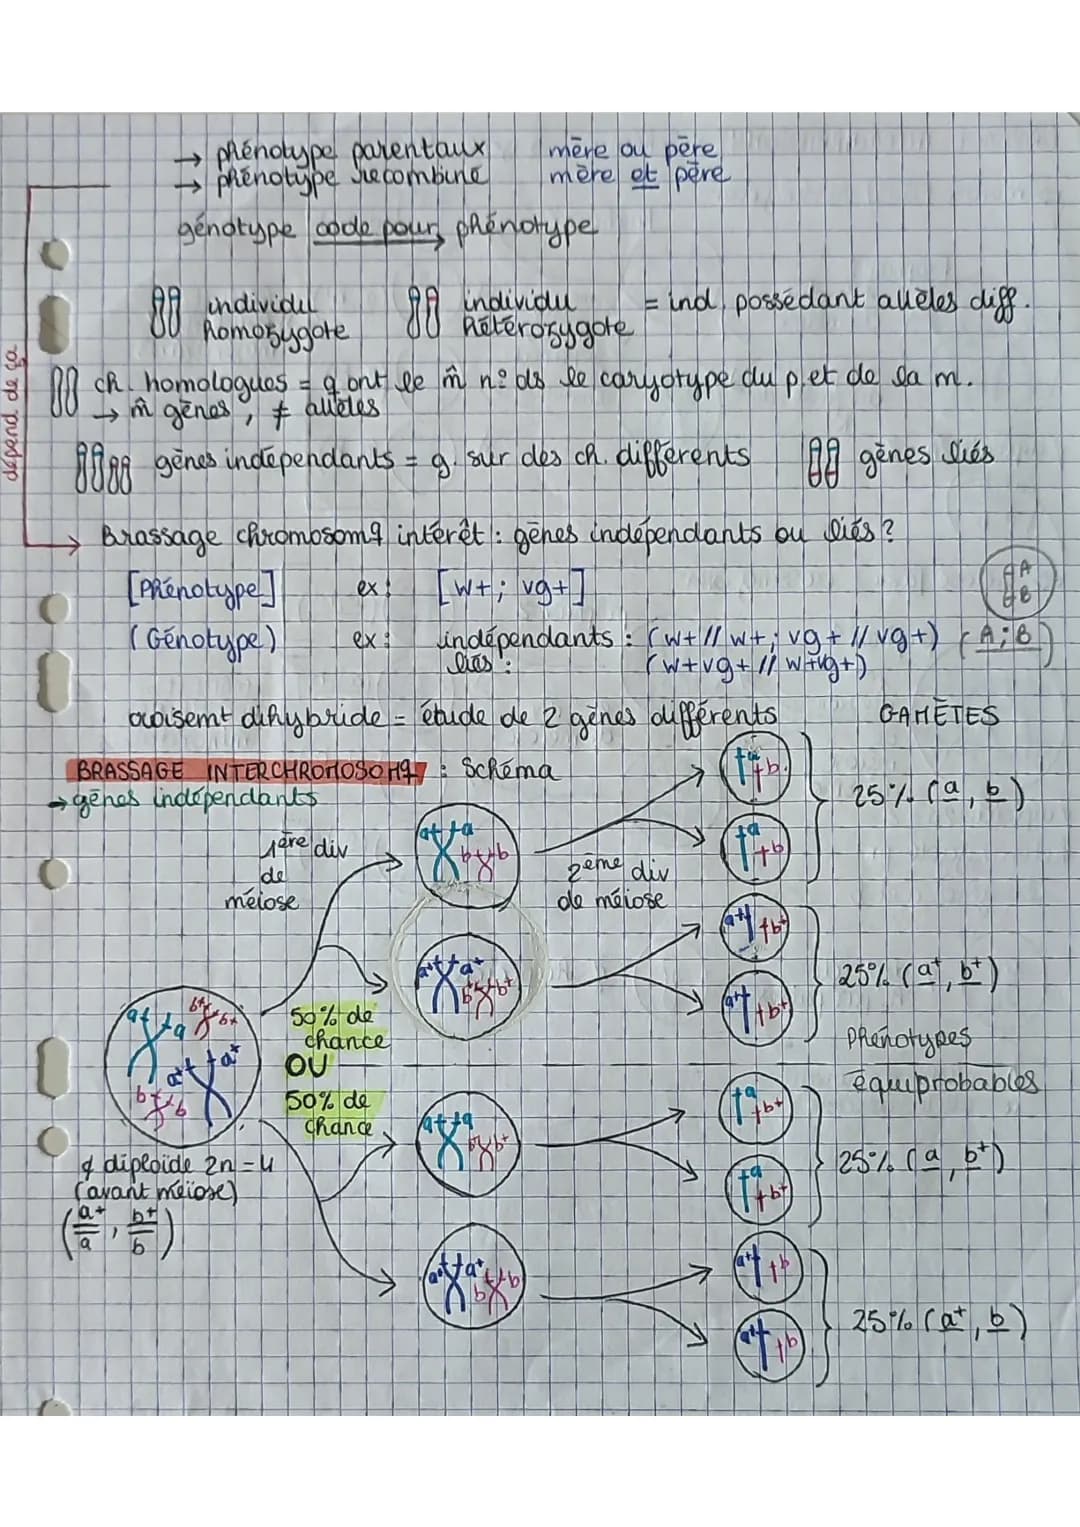 → phénotype parentaux mère ou père
→ phénotype recombiné mère et père
génotype code pour phénotype
individu homozygote
individu hétérozygote = ind. possédant allèles diff.
dépend de ça
ch. homologues = q ont le m̂ n° ds le caryotype du p. et de la m.
→ m̂ gènes, ≠ allèles
gènes indépendants = g. sur des ch. différents
gènes liés
→ Brassage chromosomq intérêt : gènes indépendants ou liés ?
[Phénotype] ex : [w+ ; vg+]
A
B
(Génotype) ex : indépendants : (w+ // w+ ; vg+ // vg+) (A ; B)
liés : (w+vg+ // w+vg+)
croisemt dihybride = étude de 2 gènes différents
GAMÈTES
BRASSAGE INTERCHROMOSOMq : Schéma
→ gènes indépendants
1ère div de méiose
2ème div de méiose
a a b b
a b
a b
25% (a, b)
a+ a+ b+ b+
a+ b+
a+ b+
25% (a+, b+)
50% de chance
OU
50% de chance
Phénotypes équiprobables
a a b+ b+
a+ a+ b b
¢ diploïde 2n = 4
(avant méiose)
(a+/a , b+/b)
a a b+ b+
a b+
a b+
25% (a, b+)
a+ a+ b b
a+ b
a+ b
25% (a+, b)